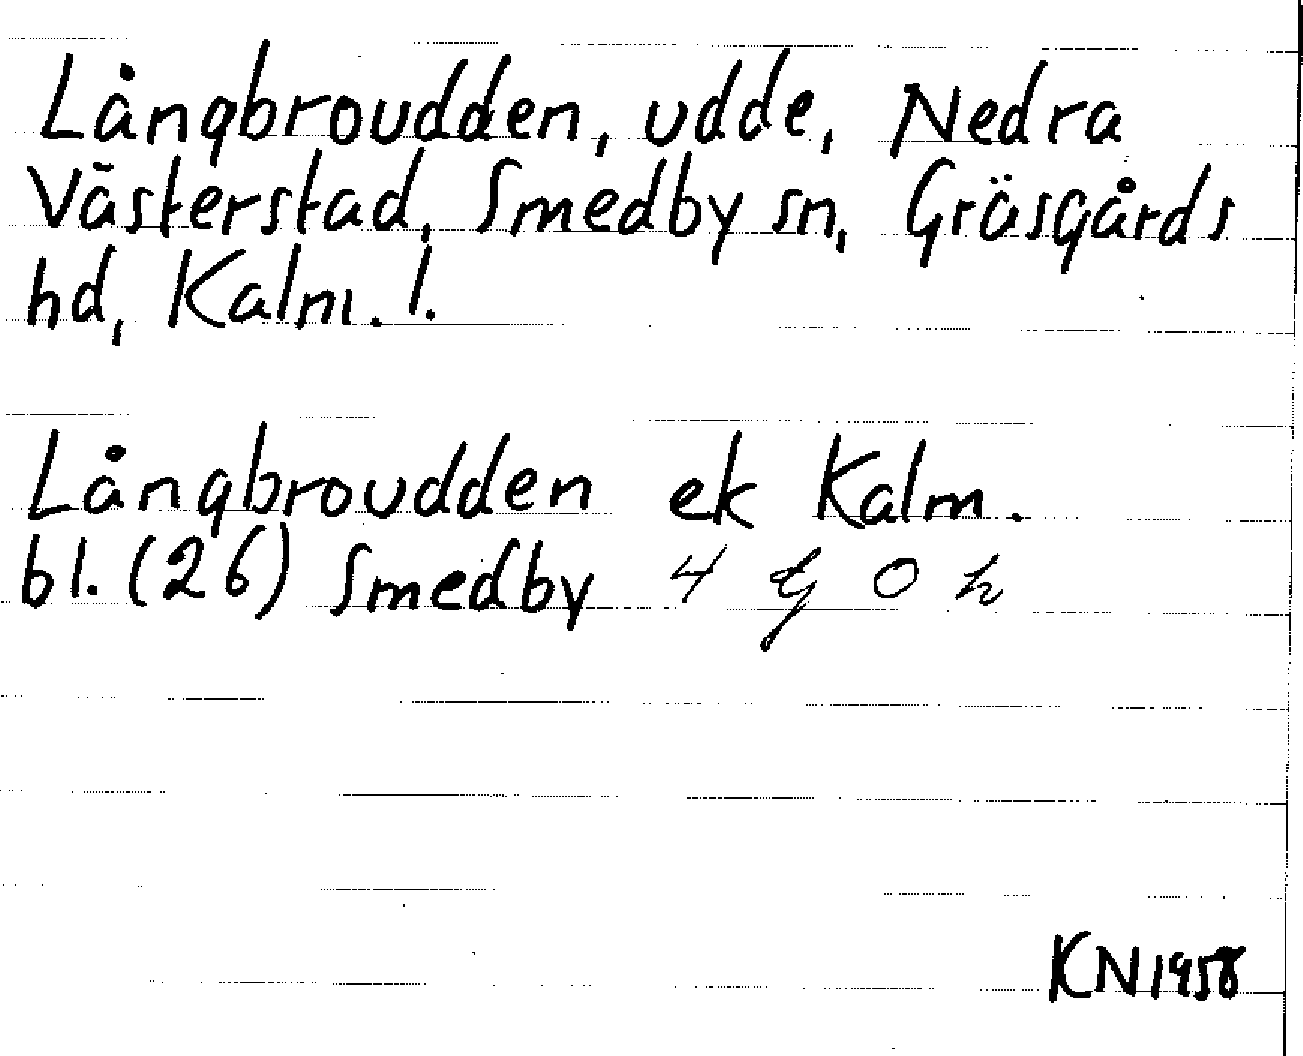 Långbroudden, udde, Nedra
Västerstad, Smedby sn, Gräsgårds
hd, Kalm. l.
Långbroudden ek Kalm.
bl. (26) Smedby 4 G 0 h
KN 1958